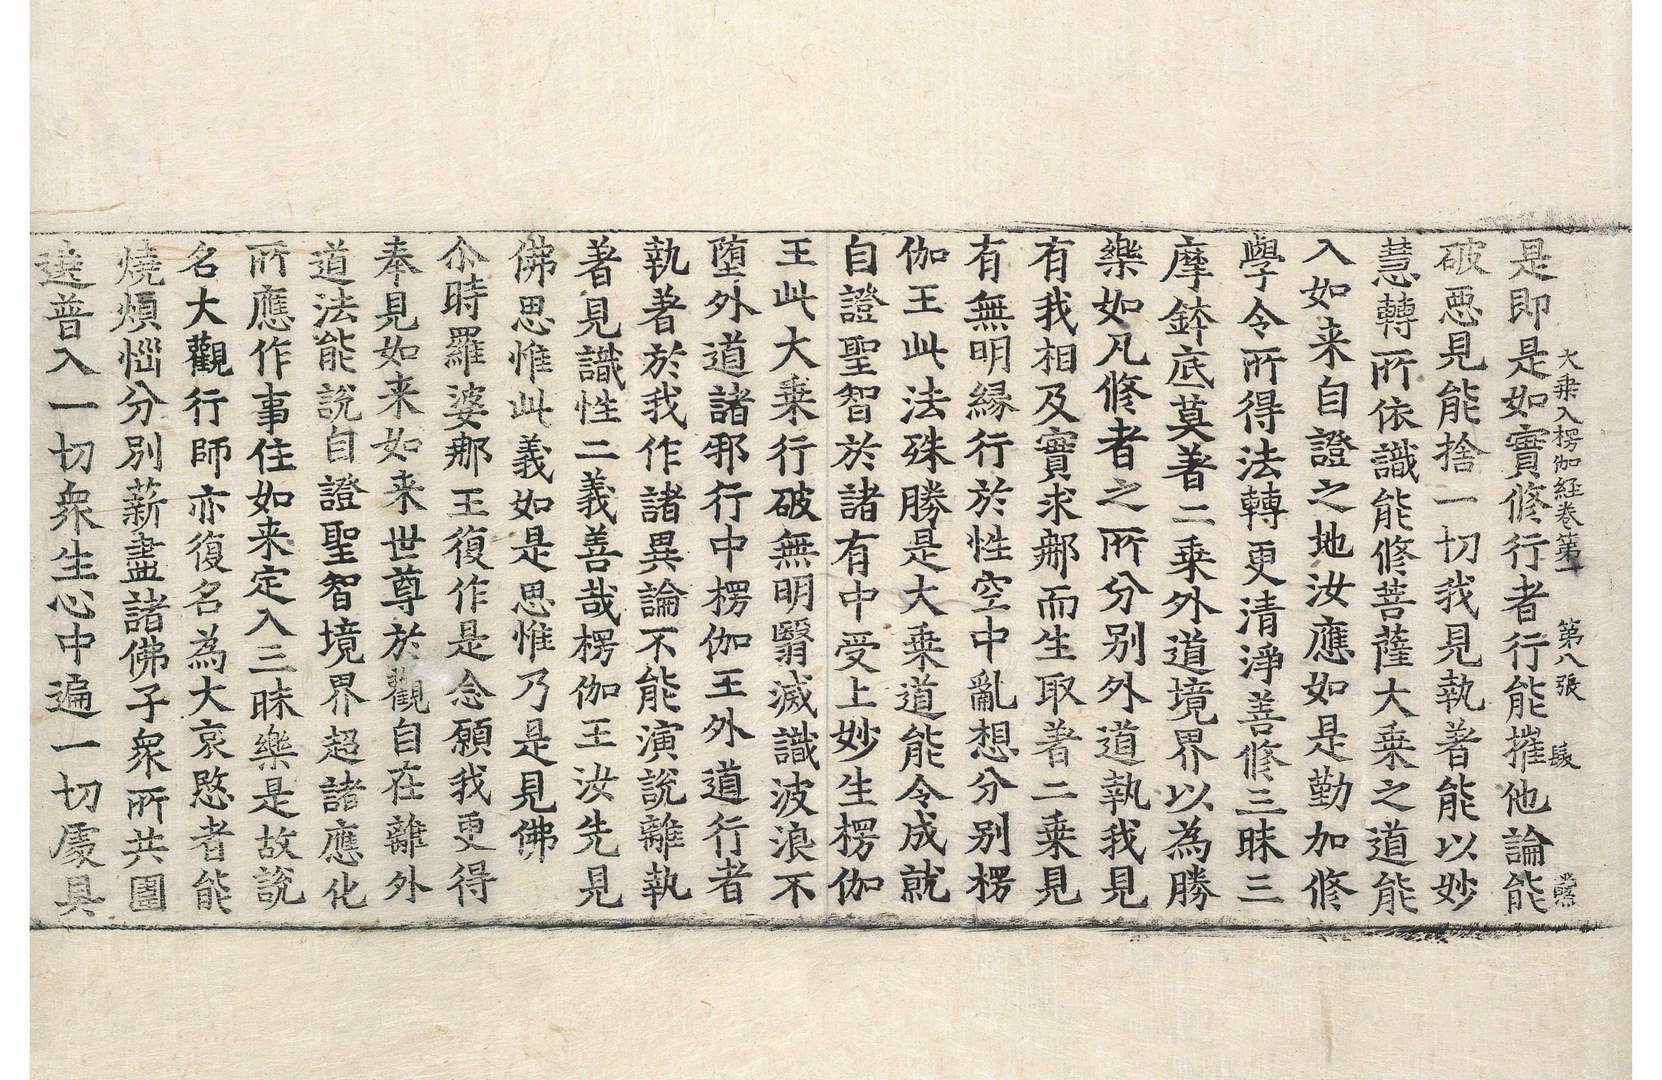 大乗入楞伽経巻第一　第八張　髪
是即是如實修行者行能摧他論能
破惡見能捨一切我見執著能以妙
慧轉所依識能修菩薩大乗之道能
入如来自證之地汝應如是勤加修
學令所得法轉更清淨善修三昧三
摩鉢底莫著二乗外道境界以為勝
樂如凡修者之所分别外道執我見
有我相及實求那而生取著二乗見
有無明緣行於性空中亂想分别楞
伽王此法殊勝是大乗道能令成就
自證聖智於諸有中受上妙生楞伽
王此大乗行破無明翳滅識波浪不
墮外道諸邪行中楞伽王外道行者
執著於我作諸異論不能演說離執
著見識性二義善哉楞伽王汝先見
佛思惟此義如是思惟乃是見佛
尒時羅婆那王復作是念願我更得
奉見如来如来世尊於觀自在離外
道法能說自證聖智境界超諸應化
所應作事住如来定入三昧樂是故說
名大觀行師亦復名為大哀愍者能
燒煩惱分别薪盡諸佛子衆所共圍
遶普入一切衆生心中遍一切處具